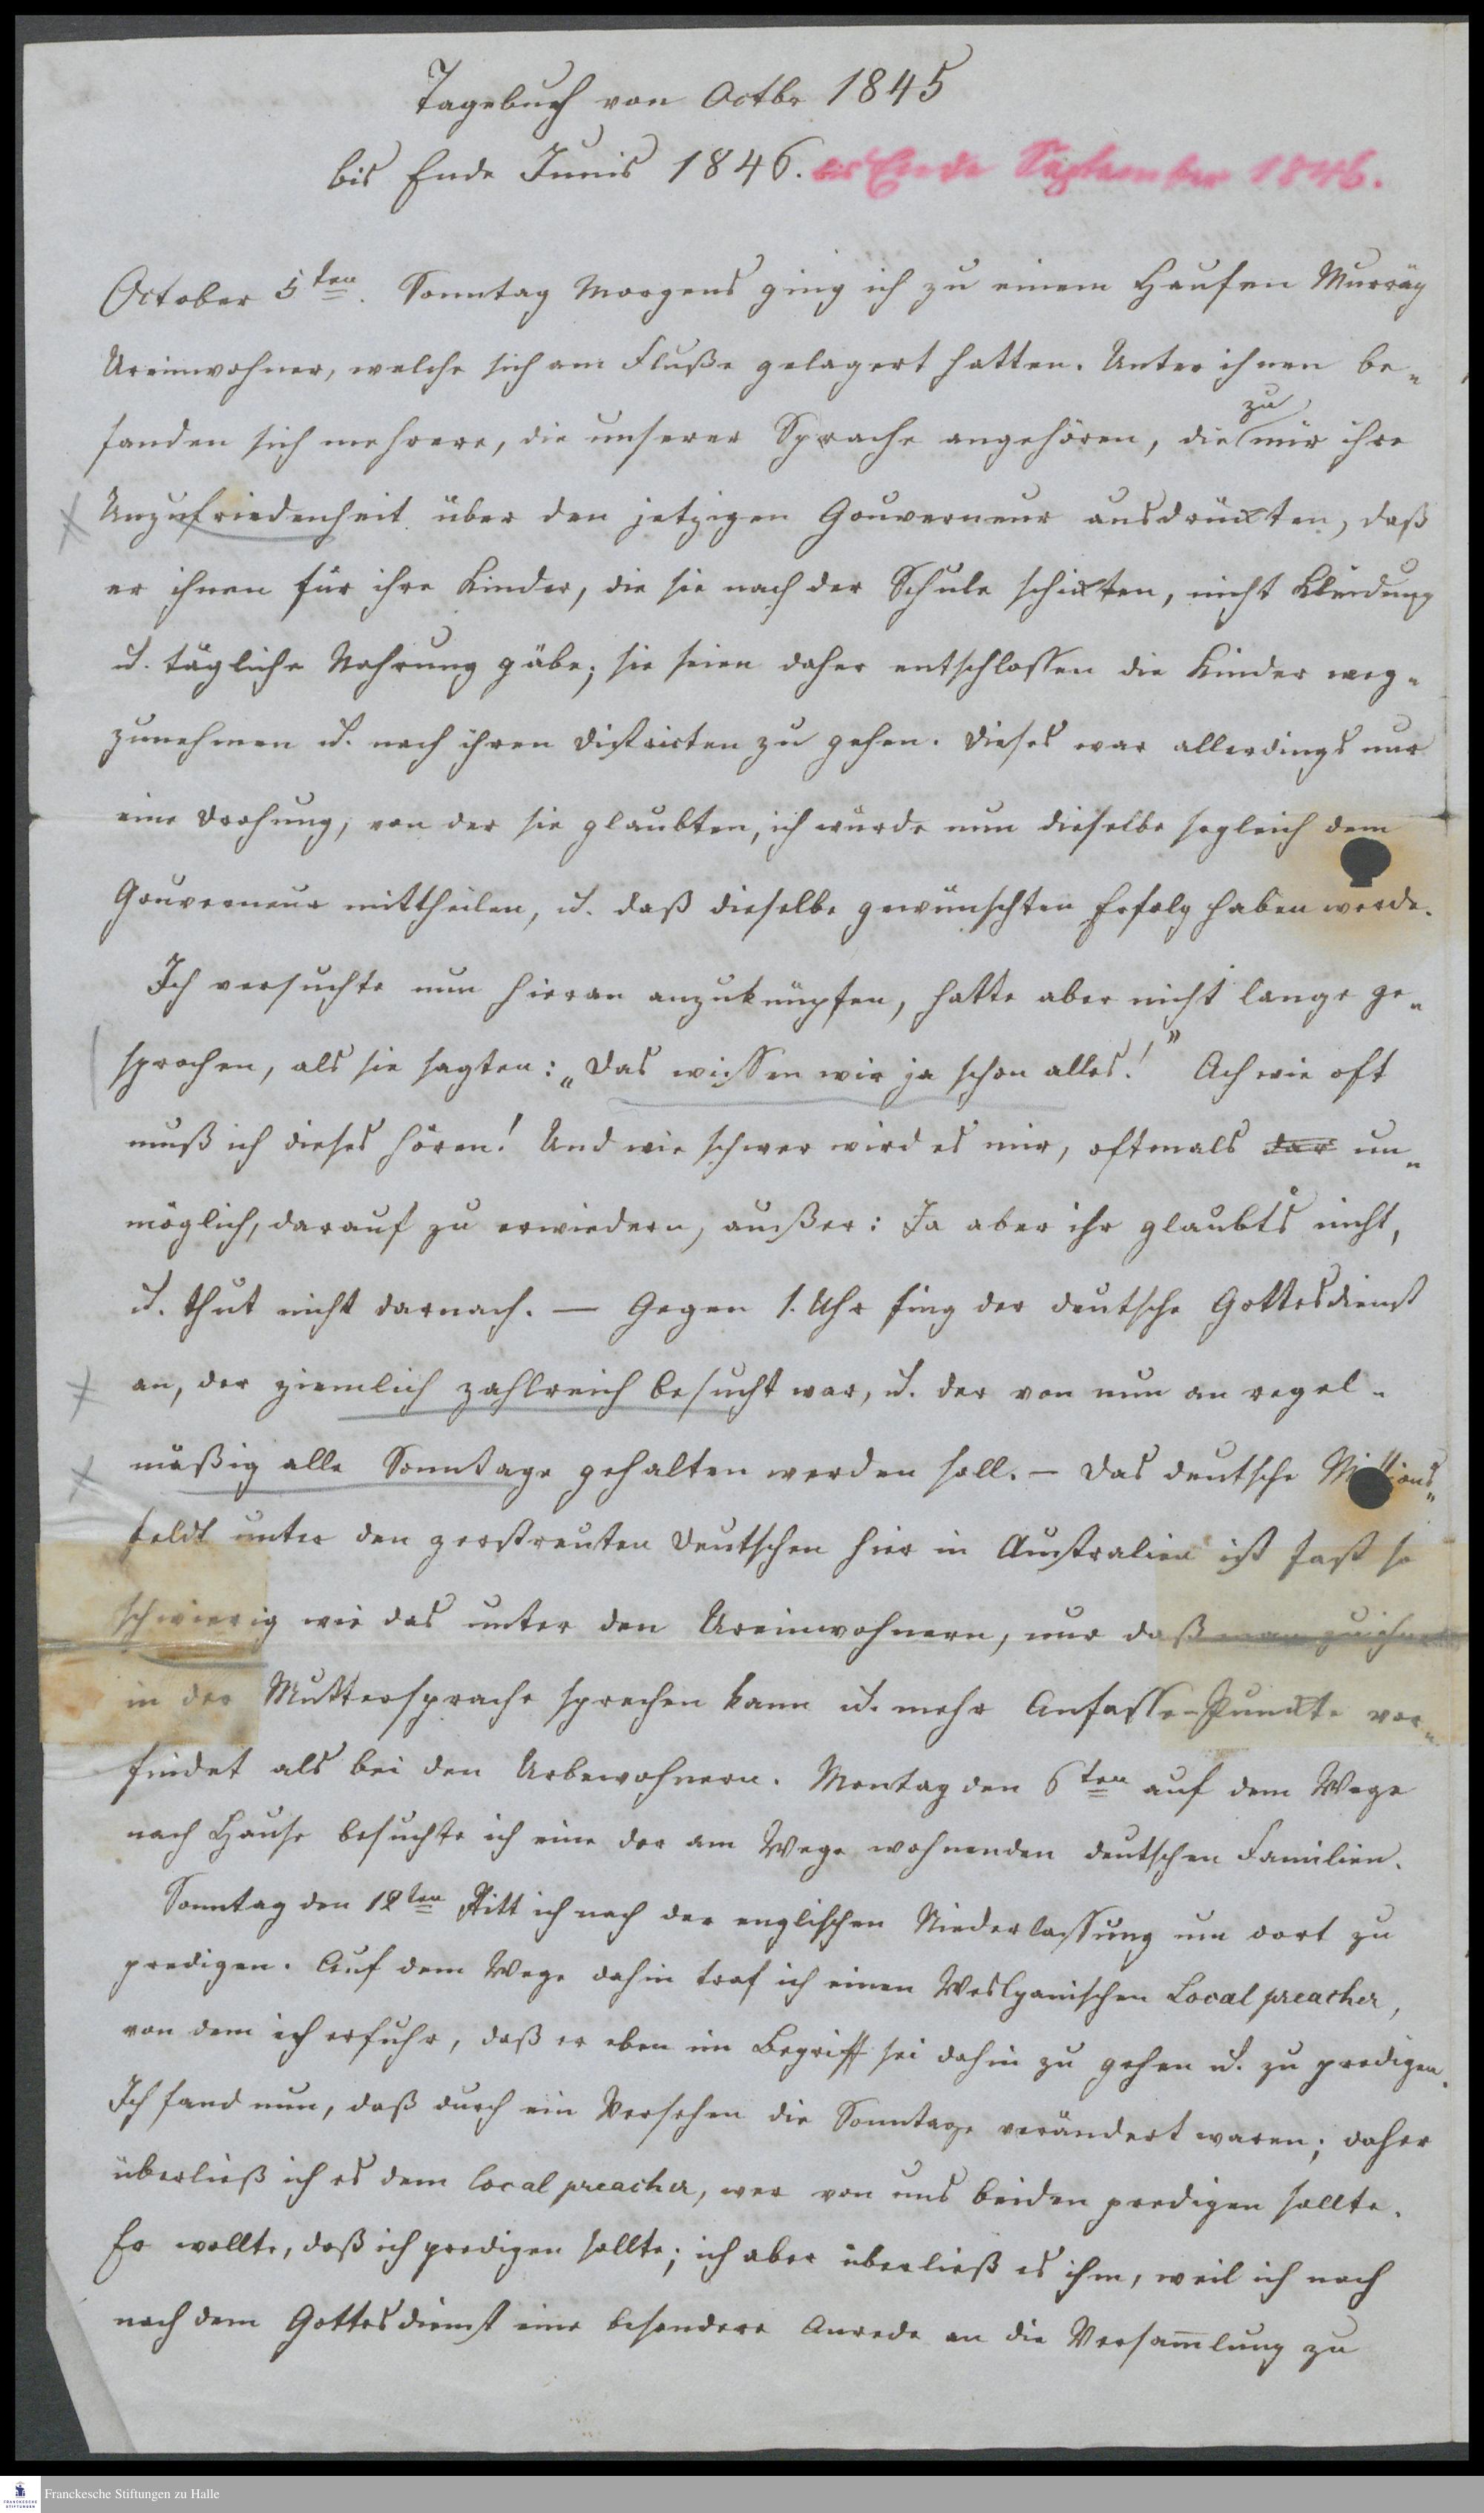 Tagebuch von Octbr 1845
bis Ende Junis 1846. bis Ende September 1846.
October 5ten. Sonntag Morgens ging ich zu einem Haufen Murräy
Ureinwohner, welche sich am Fluße gelagert hatten. Unter ihnen be-
fanden sich mehrere, die unserer Sprache angehören, die zu mir ihre
Unzufriedenheit über den jetzigen Gouverneur ausdrückten, daß
er ihnen für ihre Kinder, die sie nach der Schule schickten, nicht Kleidung
u. tägliche Nahrung gäbe; sie seien daher entschlossen die Kinder weg-
zunehmen u. nach ihren Districten zu gehen. Dieses war allerdings nur
eine Drohung, von der sie glaubten, ich würde nun dieselbe sogleich dem
Gouverneur mittheilen, u. daß dieselbe gewünschten Erfolg haben werde.
Ich versuchte nun hieran anzuknüpfen, hatte aber nicht lange ge-
sprochen, als sie sagten: „Das wissen wir ja schon alles!” Ach wie oft
muß ich dieses hören! Und wie schwer wird es mir, oftmals dar un-
möglich, darauf zu erwiedern, außer: Ja aber ihr glaubts nicht,
u. thut nicht darnach. — Gegen 1. Uhr fing der deutsche Gottesdienst
an, der ziemlich zahlreich besucht war, u. der von nun an regel-
mäßig alle Sonntage gehalten werden soll. — Das deutsche Missions-
feldt unter den zerstreuten Deutschen hier in Australien ist fast so
schwierig wie das unter den Ureinwohnern, nur daß man zu ihnen
in der Muttersprache sprechen kann u. mehr Anfasse-Punckte vor-
findet als bei den Urbewohnern. Montag den 6ten auf dem Wege
nach Hause besuchte ich eine der am Wege wohnenden deutschen Familien.
Sonntag den 12ten Ritt ich nach der englischen Niederlassung um dort zu
predigen. Auf dem Wege dahin traf ich einen Weslyanischen Local preacher,
von dem ich erfuhr, daß er eben im Begriff sei dahin zu gehen u. zu predigen.
Ich fand nun, daß durch ein Versehen die Sonntage verändert waren; daher
überließ ich es dem local preacher, wer von uns beiden predigen sollte.
Er wollte, daß ich predigen sollte; ich aber überließ es ihm, weil ich noch
nach dem Gottesdienst eine besondere Anrede an die Versam̅lung zu
Franckesche Stiftungen zu Halle